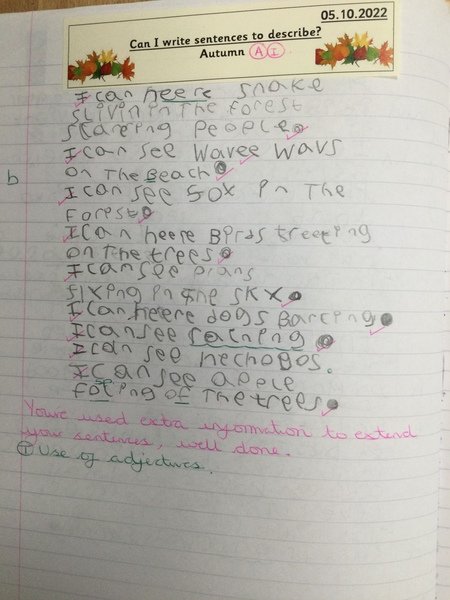 05.10.2022
Can I write sentences to describe?
Autumn A I
I can heere snake
slivin in The forest
scareing People.
I can see Wavee wavs
b on The Beach.
I can see fox in The
Forest.
I can heere Birds treeting
on the trees.
I can see plans
flxing in the skx.
I can heere dogs Barcing.
I can see raening.
I can see hechogs.
I can see apele
foling of The trees.
You've used extra information to extend
your sentences, well done.
T Use of adjectives.